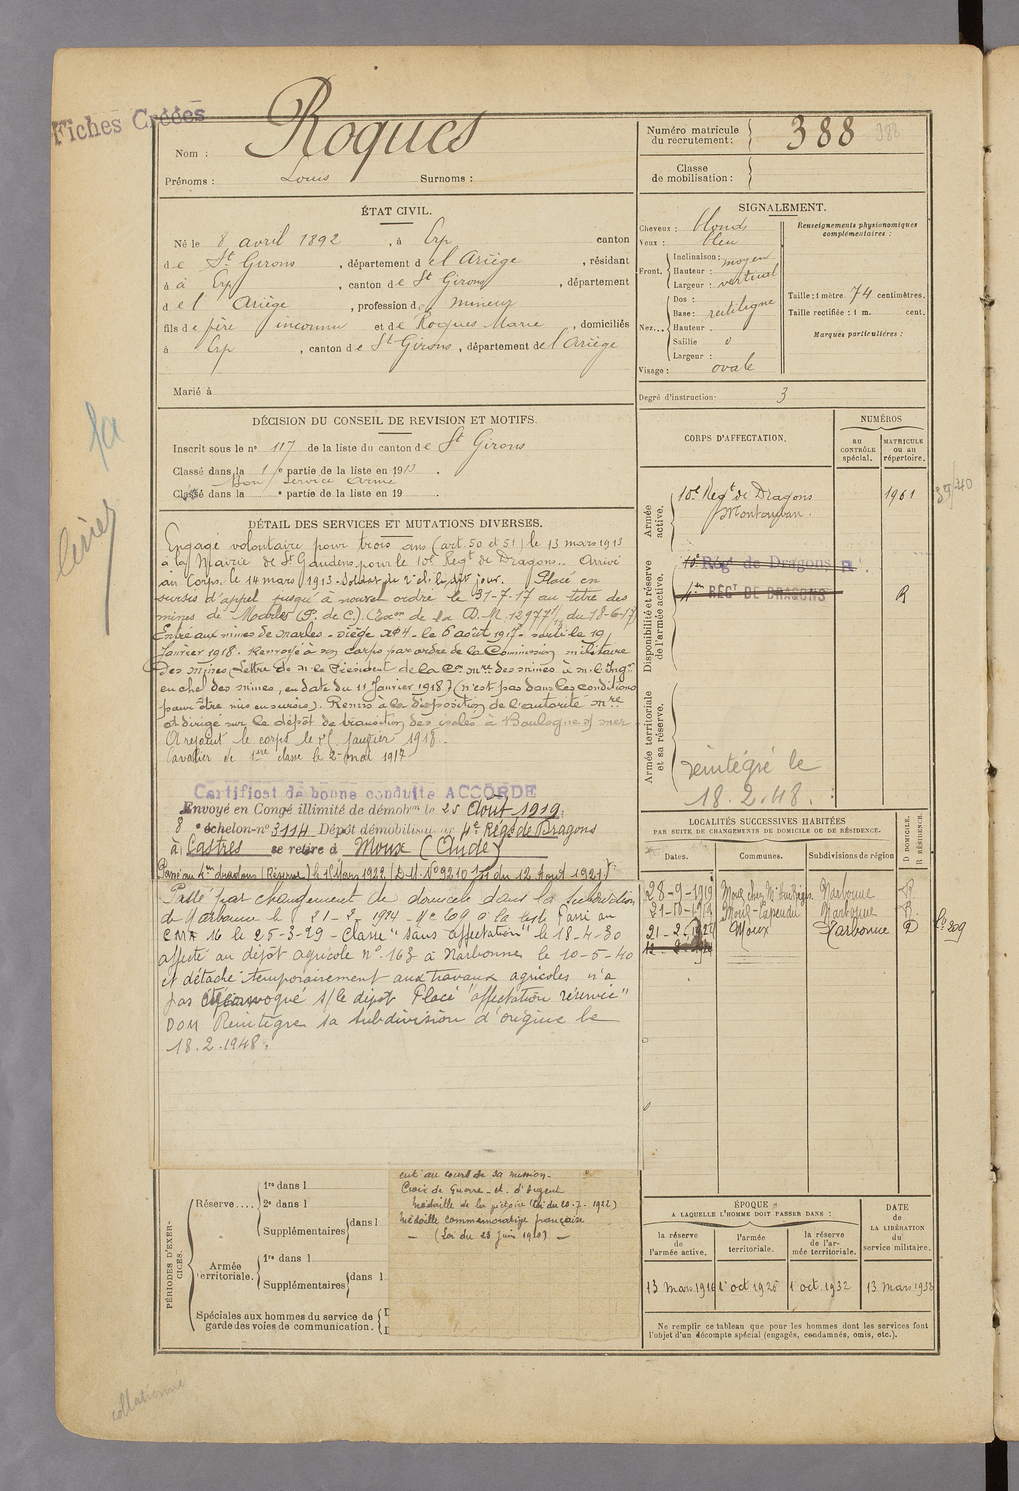 Fiches Créées
Nom : Roques
Prénoms : Louis Surnoms :
Numéro matricule du recrutement : 388 388
Classe de mobilisation :
ÉTAT CIVIL.
Né le 8 avril 1892, à Erp canton
de St Girons, département de l'Ariège, résidant
à à Erp, canton de St Girons, département
de l'Ariège, profession de mineur
fils de père inconnu et de Roques Marie, domiciliés
à Erp, canton de St Girons, département de l'Ariège
Marié à
SIGNALEMENT.
Cheveux : blonds
Yeux : bleu
Front. Inclinaison : moyen
Hauteur : vertical
Largeur :
Nez... Dos :
Base : rectiligne
Hauteur .
Saillie 0
Largeur :
Visage : ovale
Renseignements physionomiques complémentaires :
Taille : 1 mètre 74 centimètres.
Taille rectifiée : 1 m. cent.
Marques particulières :
Degré d'instruction : 3
DÉCISION DU CONSEIL DE REVISION ET MOTIFS.
Inscrit sous le n° 117 de la liste du canton de St Girons
Classé dans la 1re partie de la liste en 1913.
Bon service armé
Classé dans la e partie de la liste en 19 .
CORPS D'AFFECTATION.
NUMÉROS
AU CONTRÔLE spécial.
MATRICULE ou au répertoire.
Armée active.
10e Régt de Dragons 1961
Montauban.
39/40
Disponibilité et réserve de l'armée active.
10e Régt de Dragons R.
4me RÉGT DE DRAGONS R
Armée territoriale et sa réserve.
réintégré le
18.2.48.
DÉTAIL DES SERVICES ET MUTATIONS DIVERSES.
Engagé volontaire pour trois ans (art. 50 et 51) le 13 mars 1913
à la Mairie de St Gaudens pour le 10e Régt de Dragons. Arrivé
au Corps le 14 mars 1913. Soldat de 2e cl. le dit jour. Placé en
sursis d'appel jusqu'à nouvel ordre le 31-7-17 au titre des
mines de Marles (P. de C.) (Exon de la D.M. 12977 du 18-6-17)
Entré aux mines de Marles - siège n°4 - le 6 août 1917 - sorti le 19
Janvier 1918. Renvoyé à son corps par ordre de la Commission militaire
des mines (Lettre de Mr le Président de la Con mre des mines à Mr l'Ingr
en chef des mines, en date du 11 Janvier 1918) (n'est pas dans les conditions
pour être mis en sursis). Remis à la disposition de l'autorité mre
et dirigé sur le dépôt de transition des isolés à Boulogne s/ mer
A rejoint le corps le janvier 1918.
Cavalier de 1ère classe le 2 mai 1917
Certificat de bonne conduite ACCORDÉ
Envoyé en Congé illimité de démobon le 25 Août 1919.
8e échelon n° 3114 Dépôt démobilisateur 4e Régt de Dragons
à Castres se retire à Moux (Aude)
Passé au 4me dragons (Réserve) le 1 Mars 1922 (D.M. N° 9210 1/11 du 12 Août 1921)
Passé par changement de domicile dans la subdivision
de Narbonne le 21-2-1924 - N° 609 à la liste Passé au
CMA 16 le 25-3-29 - Classé "sans affectation" le 18-4-30
affecté au dépôt agricole n° 163 à Narbonne le 10-5-40
et détaché temporairement aux travaux agricoles n'a
pas convoqué s/le dépôt Placé "affectation réservée"
DOM Réintègre sa subdivision d'origine le
18.2.1948.
LOCALITÉS SUCCESSIVES HABITÉES
PAR SUITE DE CHANGEMENTS DE DOMICILE OU DE RÉSIDENCE.
Dates. Communes. Subdivisions de région D DOMICILE. R RÉSIDENCE.
28-9-1919 Moux chez Narbonne R
21-10-1919 Moux-Capendu Narbonne R.
21-2-1924 Moux Narbonne D
Lt 309
PÉRIODES D'EXERCICES.
Réserve.... 1re dans l
2e dans l
Supplémentaires dans l
Armée territoriale. 1re dans l
Supplémentaires dans l
Spéciales aux hommes du service de garde des voies de communication.
cut au cours de sa mission.
Croix de Guerre et. d'argent
Médaille de la victoire (Loi du 20-7-1922)
Médaille commémorative française
- (Loi du 23 juin 1920) -
ÉPOQUE
A LAQUELLE L'HOMME DOIT PASSER DANS :
la réserve de l'armée active. l'armée territoriale. la réserve de l'armée territoriale.
DATE de LA LIBÉRATION du service militaire.
13 mars 1916 1er oct 1926 1 oct. 1932 13 mars 1938
Ne remplir ce tableau que pour les hommes dont les services font
l'objet d'un décompte spécial (engagés, condamnés, omis, etc.).
collationné